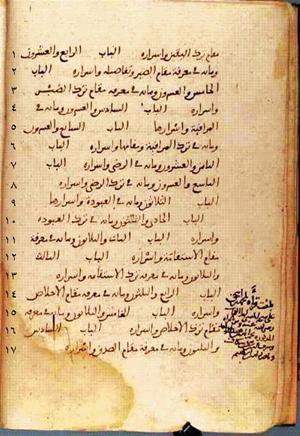 مقام ترك اليقين واسراره الباب الرابع والعشرون ١
ومائه في معرفة مقام الصبر وتفاصيله واسراره الباب ٢
الخامس والعشرون ومائه في معرفة مقام ترك الصبر ٣
واسراره الباب السادس والعشرون ومائه في ٤
المراقبة واسرارها الباب السابع والعشرون ٥
ومائه في ترك المراقبة ومقامها واسراره الباب ٦
الثامن والعشرون ومائه في الرضى واسراره الباب ٧
التاسع والعشرون ومائه في ترك الرضى واسراره ٨
الباب الثلاثون ومائه في العبودة واسرارها ٩
الباب الحادي والثلثون ومائه في ترك العبودة ١٠
واسراره الباب الثاني والثلاثون ومائه في معرفة ١١
مقام الاستقامة واسراره الباب الثالث ١٢
والثلاثون ومائه في معرفة ترك الاستقامة واسراره ١٣
الباب الرابع والثلاثون ومائه في معرفة مقام الاخلاص ١٤
واسراره الباب الخامس والثلاثون ومائه في معرفة ١٥
مقام ترك الاخلاص واسراره الباب السادس ١٦
والثلاثون ومائه في معرفة مقام الصدق واسراره ١٧